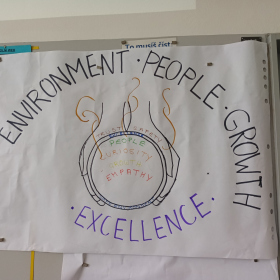 To musíš číst
ENVIRONMENT · PEOPLE · GROWTH
PEOPLE
CURIOSITY
EMPATHY
· EXCELLENCE ·